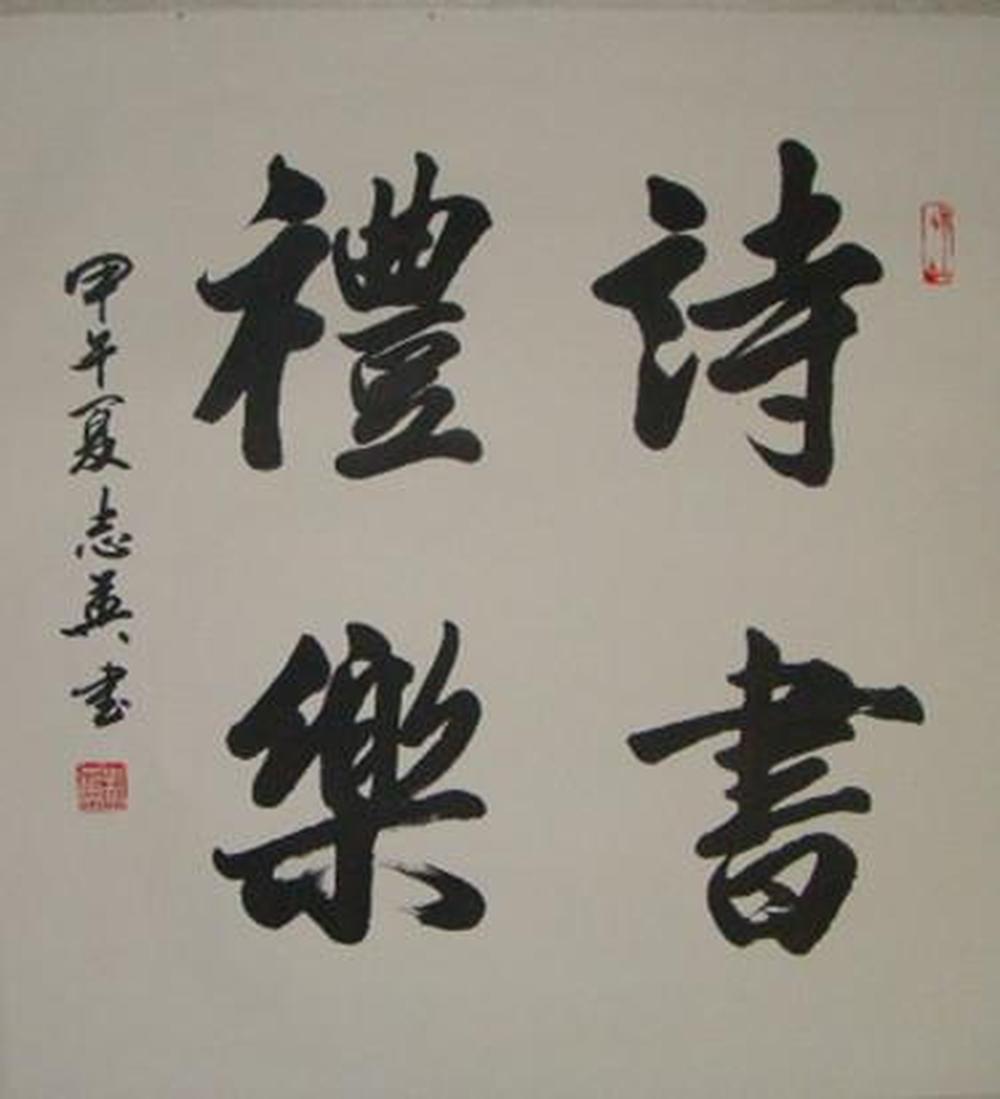 詩書
禮樂
甲午夏志英书